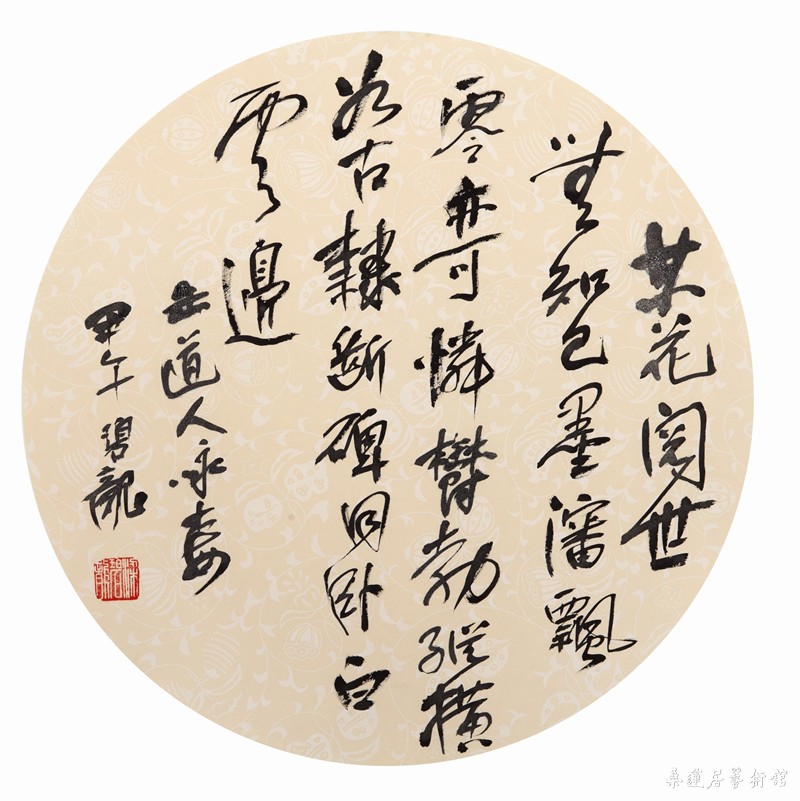 某花閱世
無知己墨瀋飄
零亦可憐鬱勃縱橫
如古隸斷碑同卧白
雲邊
缶道人咏某
甲午碧龍
桑蓮居藝術館